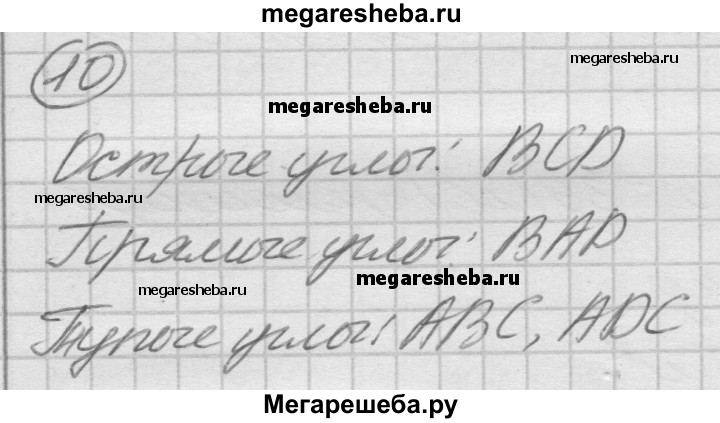 megaresheba.ru
10
megaresheba.ru
megaresheba.ru
Острые углы: BCD
megaresheba.ru
Прямые углы: BAD
megaresheba.ru
megaresheba.ru
Тупые углы: ABC, ADC
Мегарешеба.ру